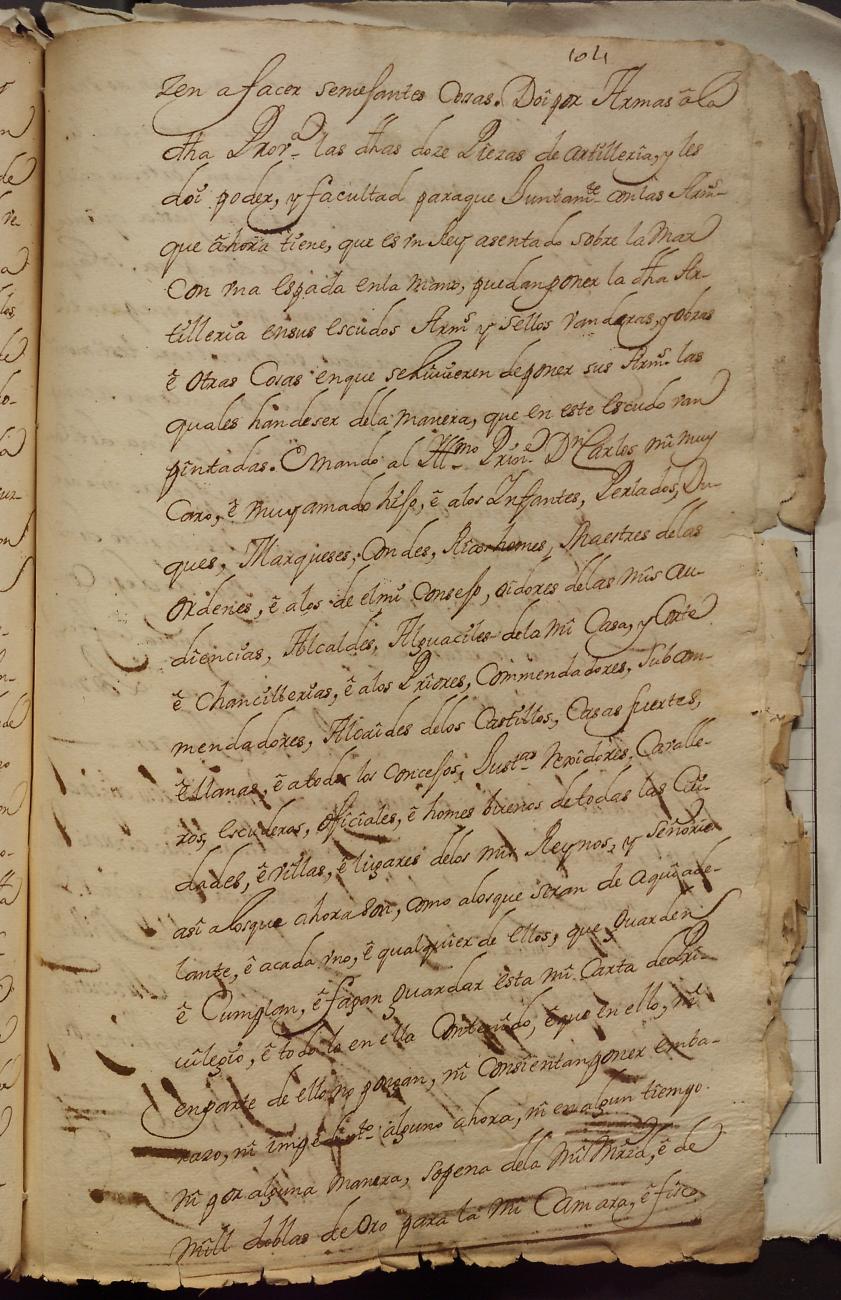 104
zen a facer semejantes Cosas. Doi por Armas â la
dha Prov.ª las dhas doze Piezas de artilleria, y les
doi poder, y facultad paraque Juntam.te con las Arm.s
que ahora tiene, que es vn Rey asentado sobre la Mar
Con vna espada enla mano, puedan poner la dha Ar-
tilleria ensus escudos Arm.s y sellos vanderas, y obras
ê otras Cosas enque sehuvieren deponer sus Arm.s las
quales handeser dela manera, que en este escudo van
pintadas. E Mando al Ill.mo Prin.e Dn Carlos mi muy
Caro, ê muy amado hijo, ê alos Infantes, Perlados, Du-
ques, Marqueses, Condes, Ricos homes, Maestres delas
ordenes, ê alos de elmi Consejo, oidores delas mis au-
diencias, Alcaldes, Alguaciles dela mi Casa, y Corte
ê Chancillerias, ê alos Priores, Commendadores, Subcom-
mendadores, Alcaides delos Castillos, Casas fuertes,
ê llanas, ê atodos los Concejos, Just.as Rexidores, Cavalle-
ros, escuderos, officiales, ê homes buenos detodas las Ciu-
dades, ê villas, ê lugares delos mis Reynos, y Señorios
asi alosque ahora son, como alosque seran de aqui ade-
lante, ê acada vno, ê qualquier de ellos, que guarden
ê Cumplan, ê fagan guardar esta mi Carta dePri-
vilegio, ê todo lo en ella Contenido, ê que en ello, ni
enparte de ello no pongan, ni Consientan poner emba-
razo, ni impedim.to alguno ahora, ni en algun tiempo.
ni por alguna manera, sopena dela Mi Mrza, ê de
Mill doblas de Oro para la mi Camara, ê fisco